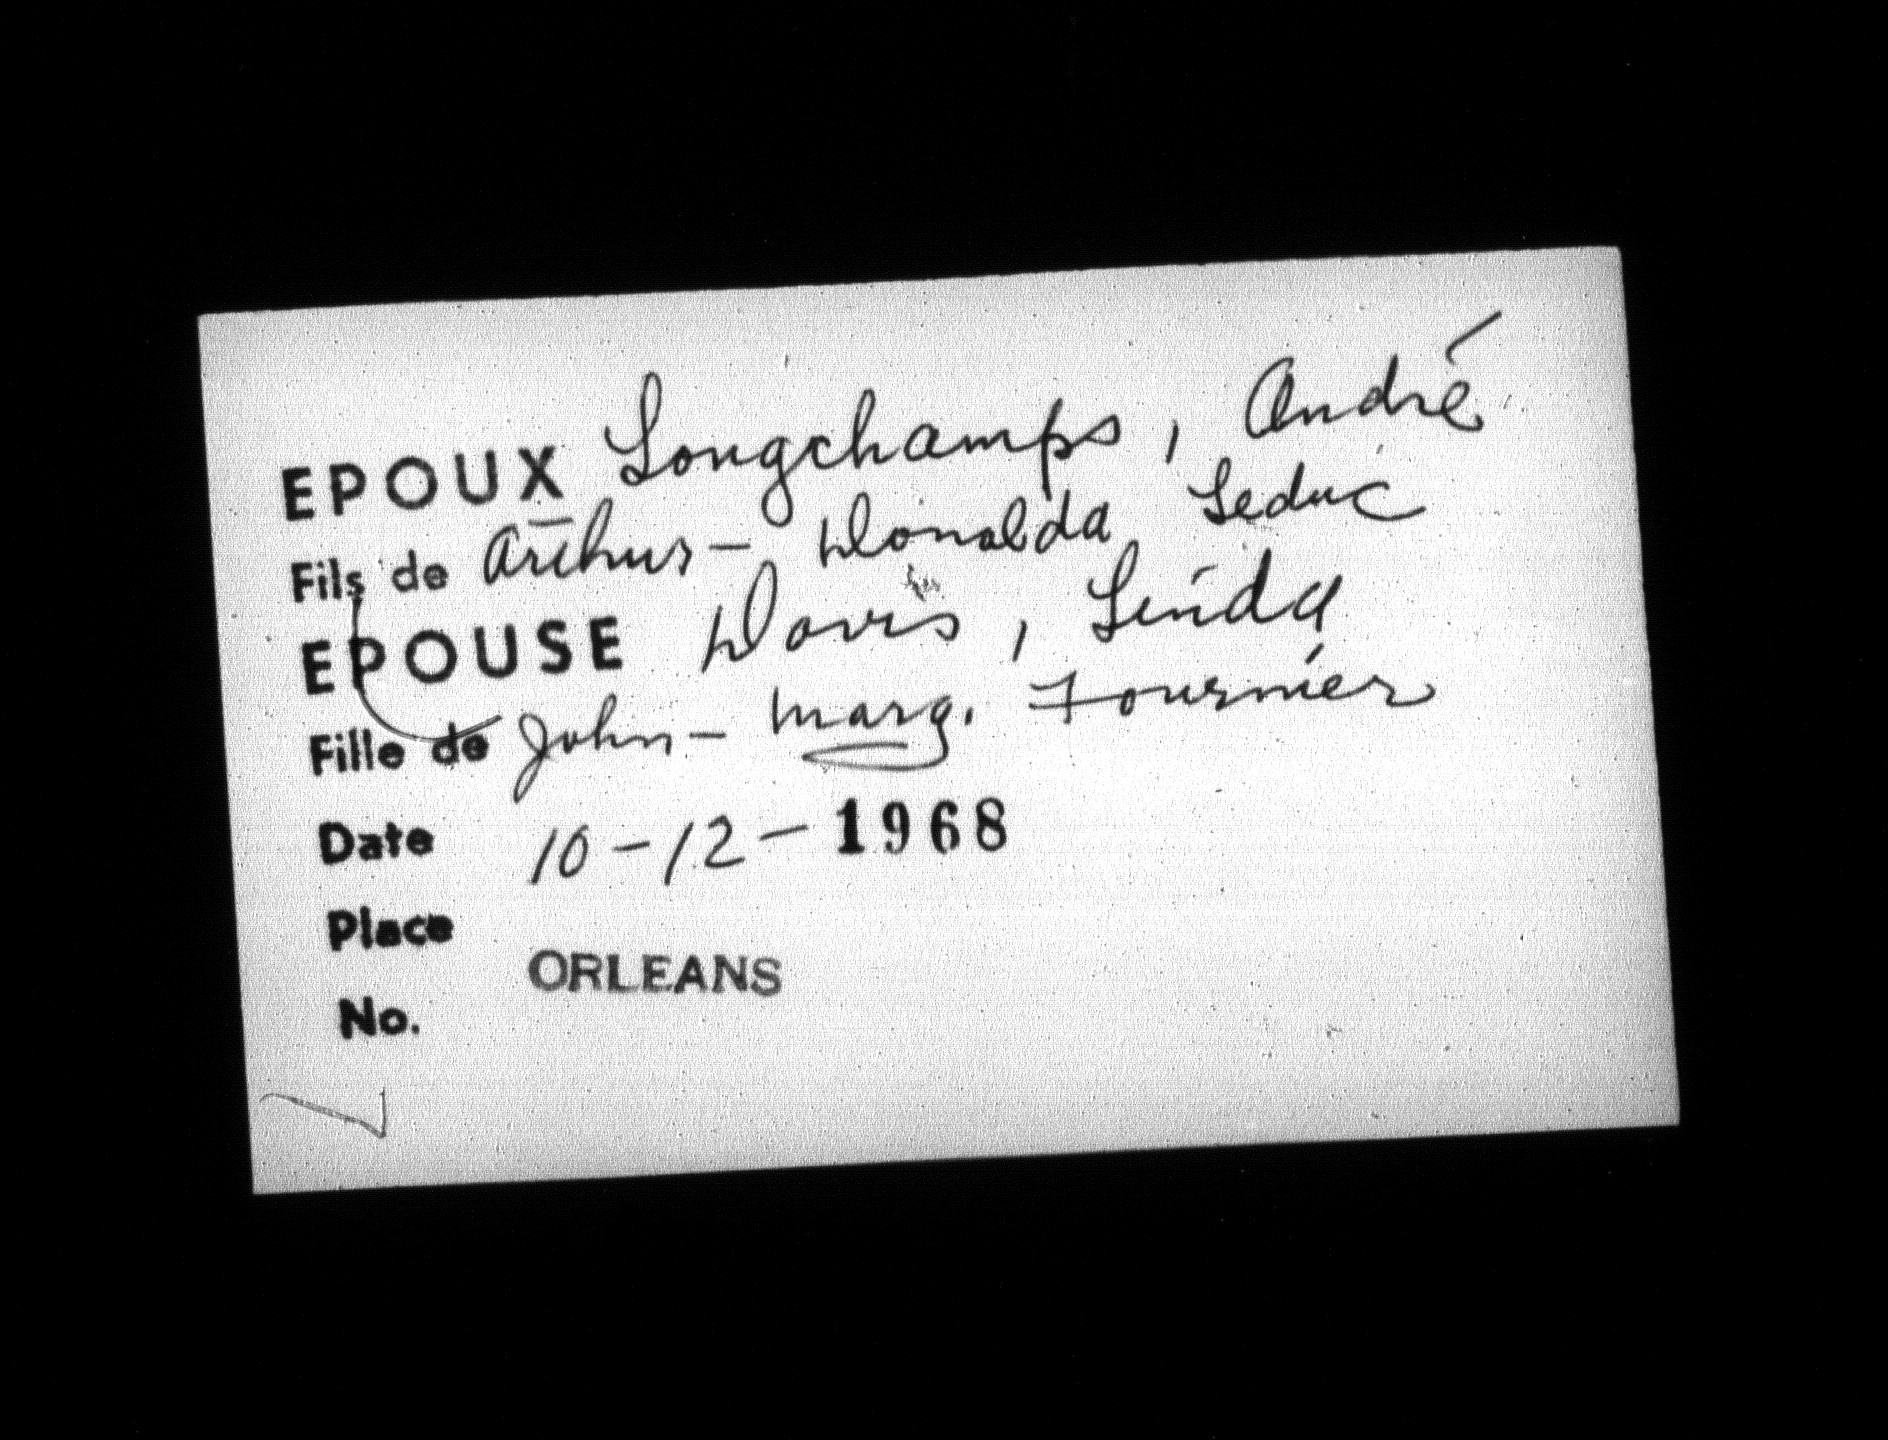 EPOUX Longchamps, André
Fils de Arthur - Donalda Leduc
EPOUSE Davis, Linda
Fille de John - Marg. Fournier
Date 10-12-1968
Place ORLEANS
No.